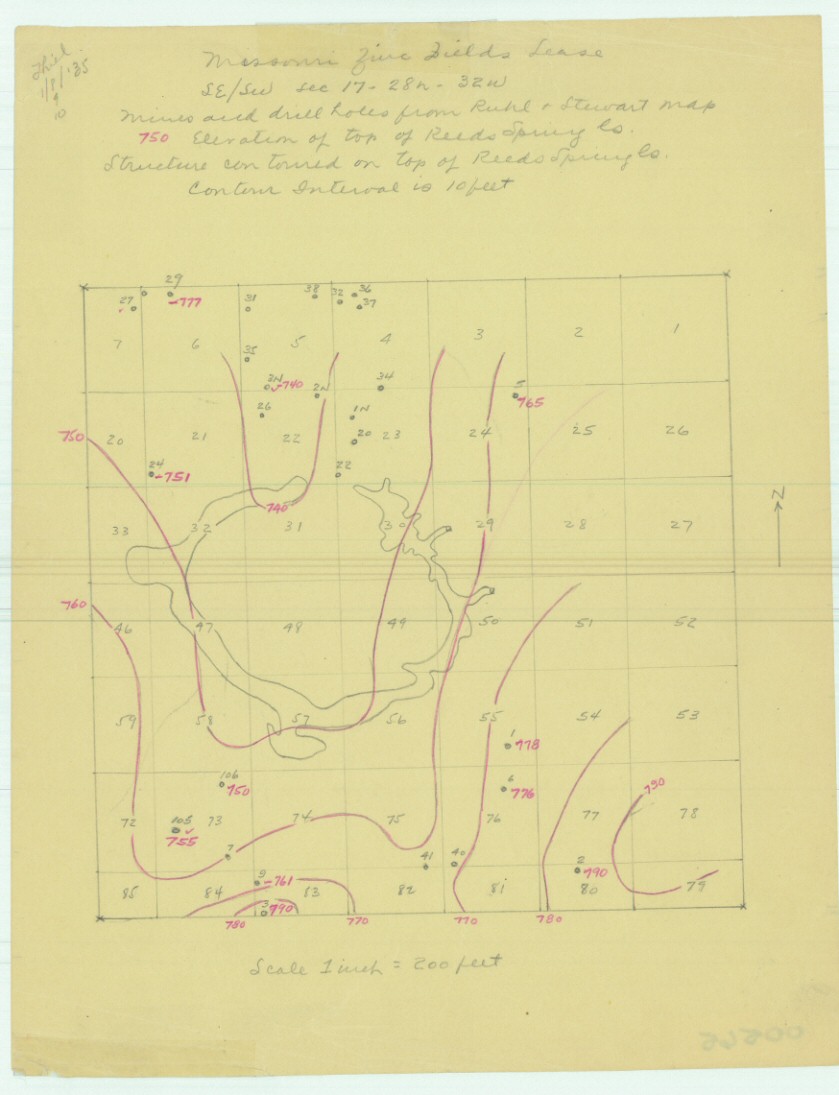 Thiel
1/8/35
Missouri Zinc Fields Lease
SE/SW Sec 17-28N-32W
Mines and drill holes from Ruhl & Stewart map
750 Elevation of top of Reeds Spring ls.
Structure contoured on top of Reeds Spring ls.
Contour Interval is 10 feet
29
27 -777 31 38 32 36
37
7 6 5 4 3 2 1
35
3N -740 2N 34 5
765
26 1N
750 20 21 22 20 23 24 25 26
24 -751 22
740
N
33 32 31 30 29 28 27
760
46 47 48 49 50 51 52
59 58 57 56 55 54 53
1 778
106 750 6 776 790
72 105 73 74 75 76 77 78
755
7 41 40 2 790
9 -761
85 84 83 82 81 80 79
3 790
780 770 770 780
Scale 1 inch = 200 feet